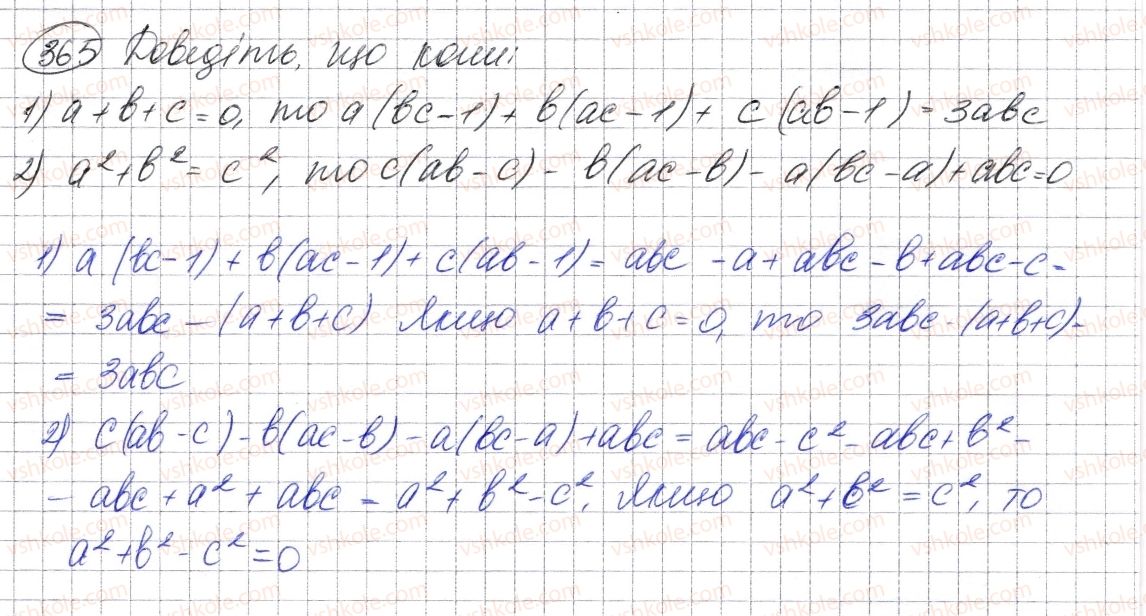 365 Доведіть, що коли:
1) a+b+c=0, то a(bc-1)+b(ac-1)+c(ab-1)=3abc
2) a²+b²=c², то c(ab-c)-b(ac-b)-a(bc-a)+abc=0
1) a(bc-1)+b(ac-1)+c(ab-1)=abc-a+abc-b+abc-c=
= 3abc-(a+b+c) Якщо a+b+c=0, то 3abc-(a+b+c)=
= 3abc
2) c(ab-c)-b(ac-b)-a(bc-a)+abc=abc-c²-abc+b²-
- abc+a²+abc=a²+b²-c², Якщо a²+b²=c², то
a²+b²-c²=0